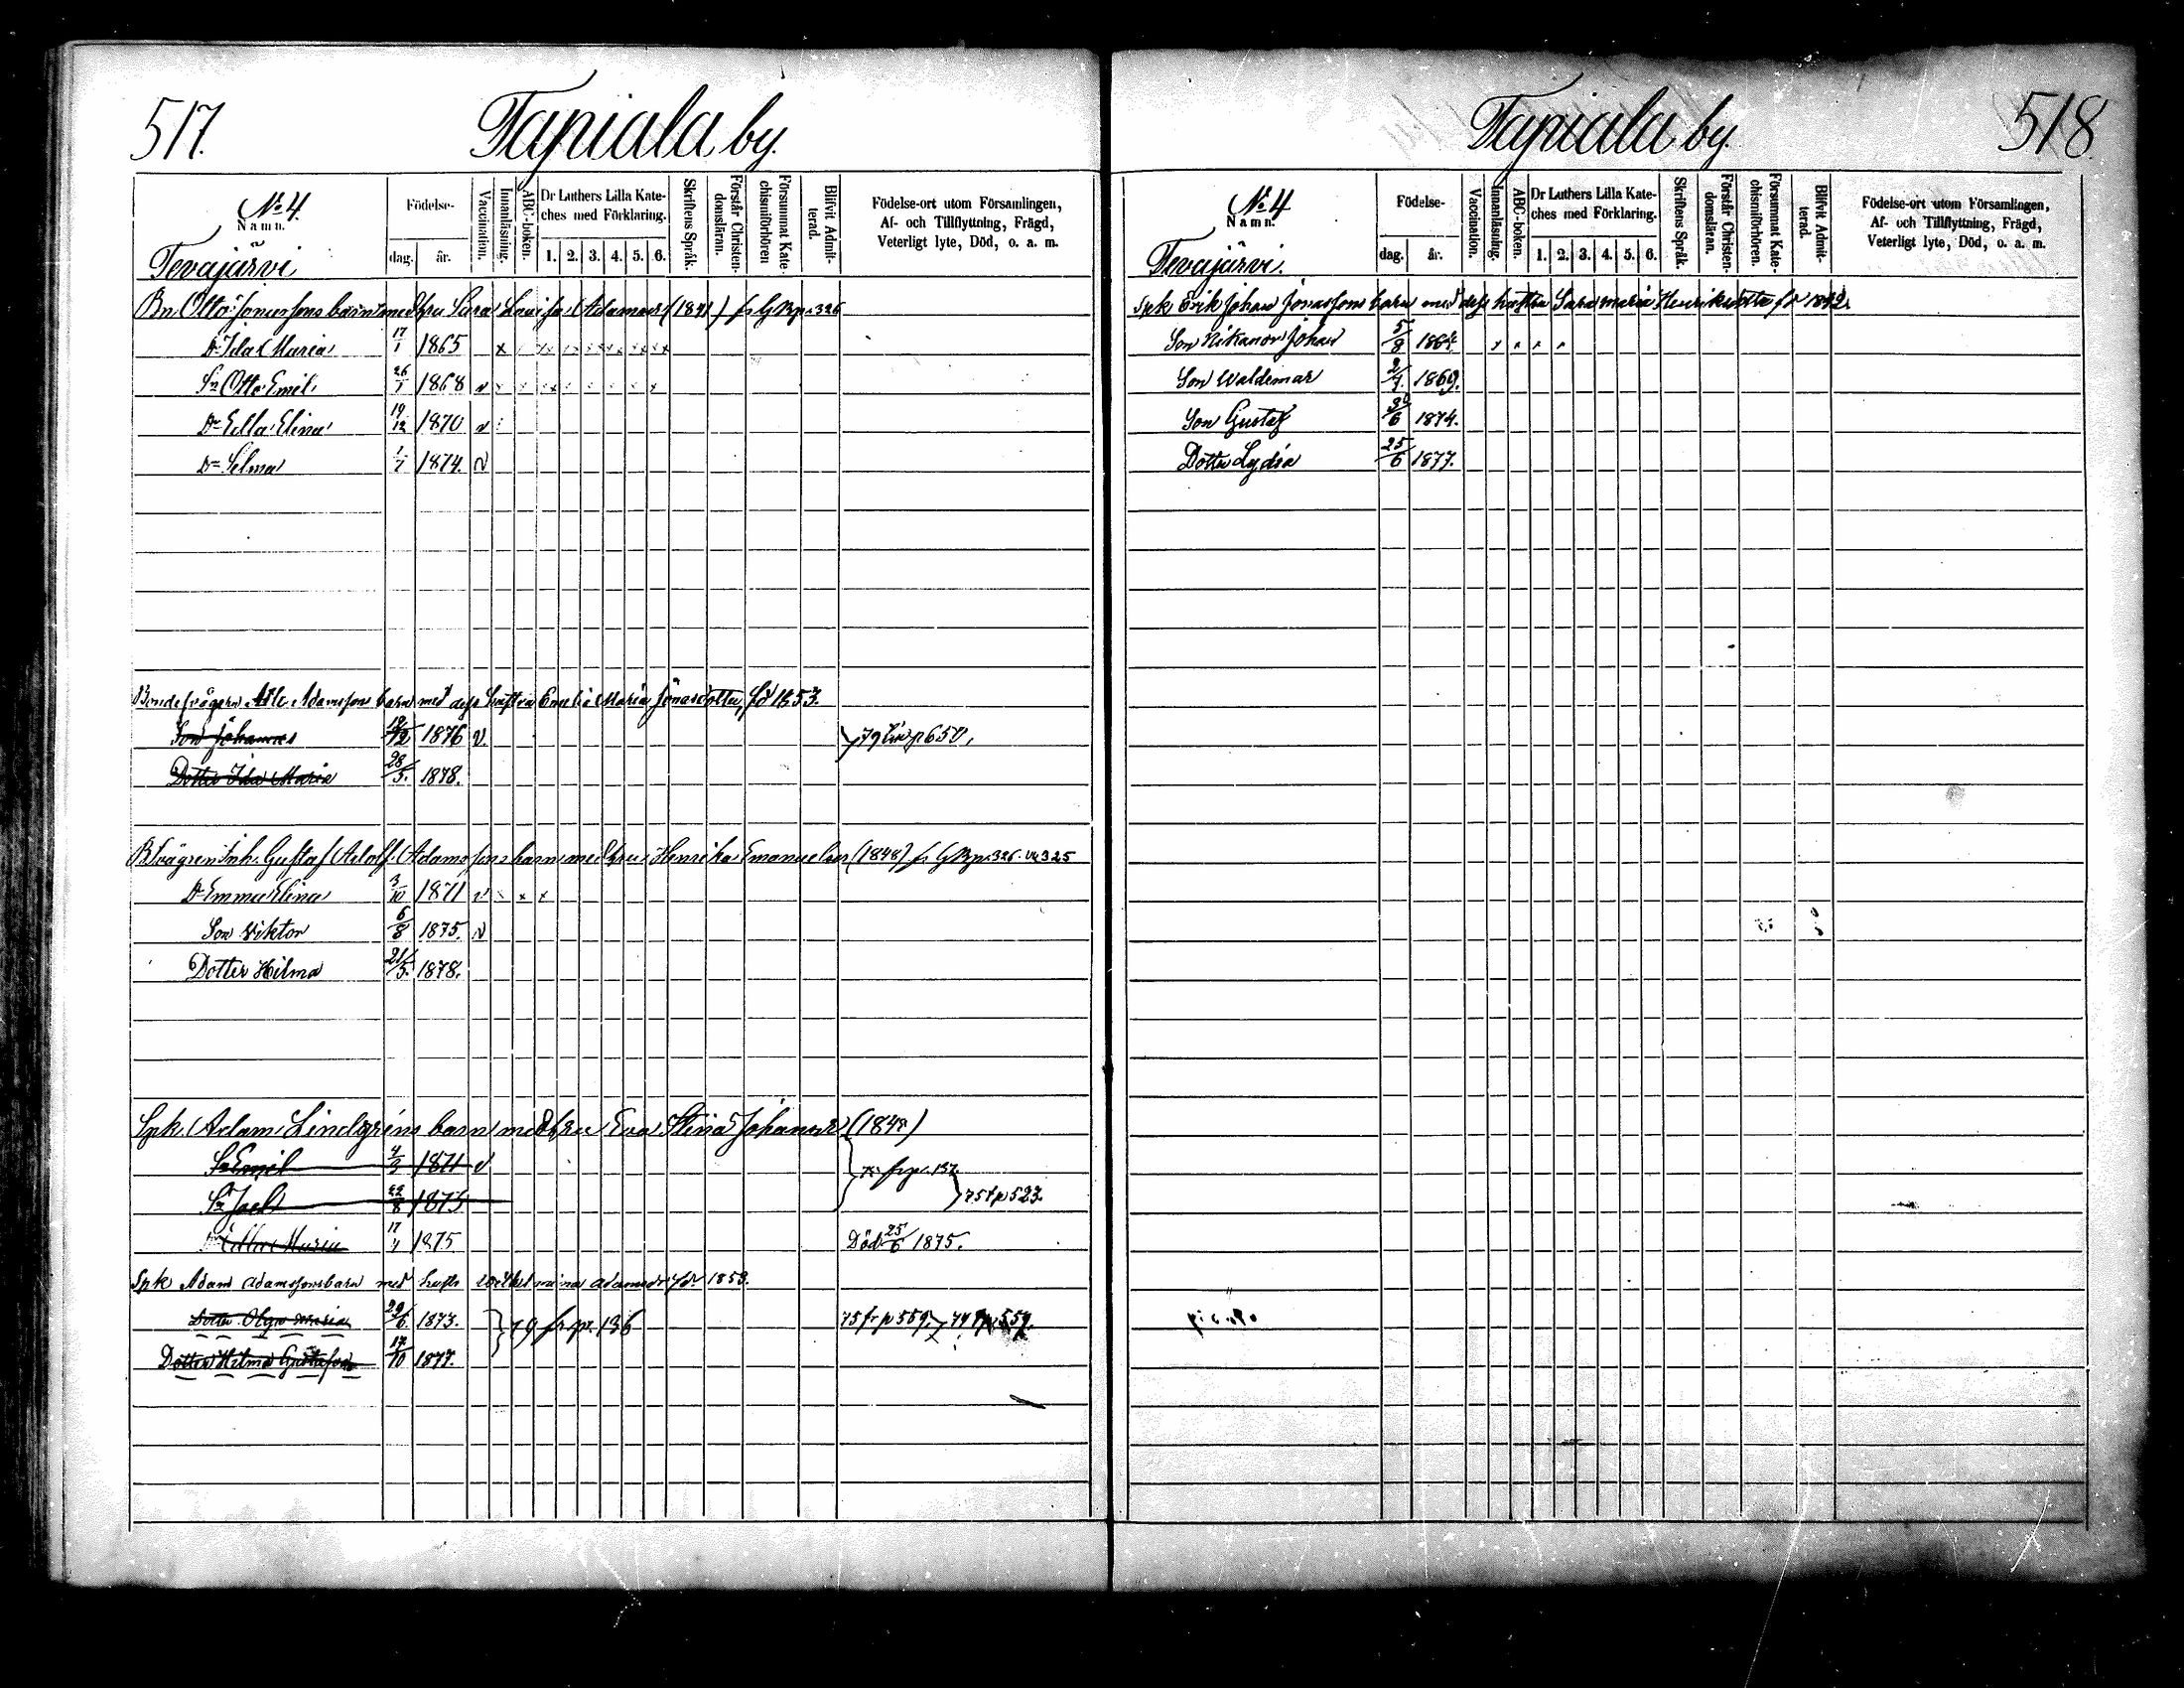 517.
Tapiala by.
No 4.
Namn.
Födelse-
dag.
år.
Vaccination.
Innanläsning.
ABC-boken.
Dr Luthers Lilla Kate-
ches med Förklaring.
1. 2. 3. 4. 5. 6.
Skriftens Språk.
Förstår Christen-
domsläran.
Försummat Kate-
chismiförhören
Blifvit Admit-
terad.
Födelse-ort utom Församlingen,
Af- och Tillflyttning, Frägd,
Veterligt lyte, Död, o. a. m.
Tevajärvi
Bn. Otto Jonassons barn med hru Sara Lovisa Adamsdr (1841) fr G Bp. 326
Dr Ida Maria 17/1 1865
Sn Otto Emil 26/1 1868 v
Dr Edla Elina 19/12 1870 v
Dr Selma 1/7 1874. v
Adamsson barn med dess hustru Emelia Maria Jonasdotter, föd 1853.
Son Johannes 12 1876 v. 79 p 650,
Dotter Ida Maria 28/5. 1878.
Gustaf Adolf Adamssons barn med hru Henrika Emanuelsdr (1848) fr G Bp. 326. 325
Dr Emma Elina 3/10 1871 v
Son Viktor 6/8 1875. v
Dotter Hilma 21/5. 1878.
Spk. Adam Lindgréns barn med hru Eva Stina Johansdr (1848)
Sn Emil 4/3 1871 v fr p. 137.
Sn Joel 22/8 1873 75 t p 523.
Dr Edla Maria 17/4 1875 Död 25/6 1875.
Spk Adam Adamssons barn med hustr Vilhelmina Adamsdr föd 1853.
Dotter Olga Maria 29/6. 1873. 79 fr. p. 136 75 fr p 559. 79 p 559.
Dotter Hilma Gustafva 17/10 1877.
Tapiala by.
518.
No 4
Namn.
Födelse-
dag.
år.
Vaccination.
Innanläsning.
ABC-boken.
Dr Luthers Lilla Kate-
ches med Förklaring.
1. 2. 3. 4. 5. 6.
Skriftens Språk.
Förstår Christen-
domsläran.
Försummat Kate-
chismiförhören.
Blifvit Admit-
terad.
Födelse-ort utom Församlingen,
Af- och Tillflyttning, Frägd,
Veterligt lyte, Död, o. a. m.
Tevajärvi.
Spk Erik Johan Jonassons barn med dess hustru Sara Maria Henriksdotter föd 1842.
Son Nikanor Johan 5/8 1864.
Son Waldemar 2/7. 1869.
Son Gustaf 30/6 1874.
Dotter Lydia 25/6 1877.